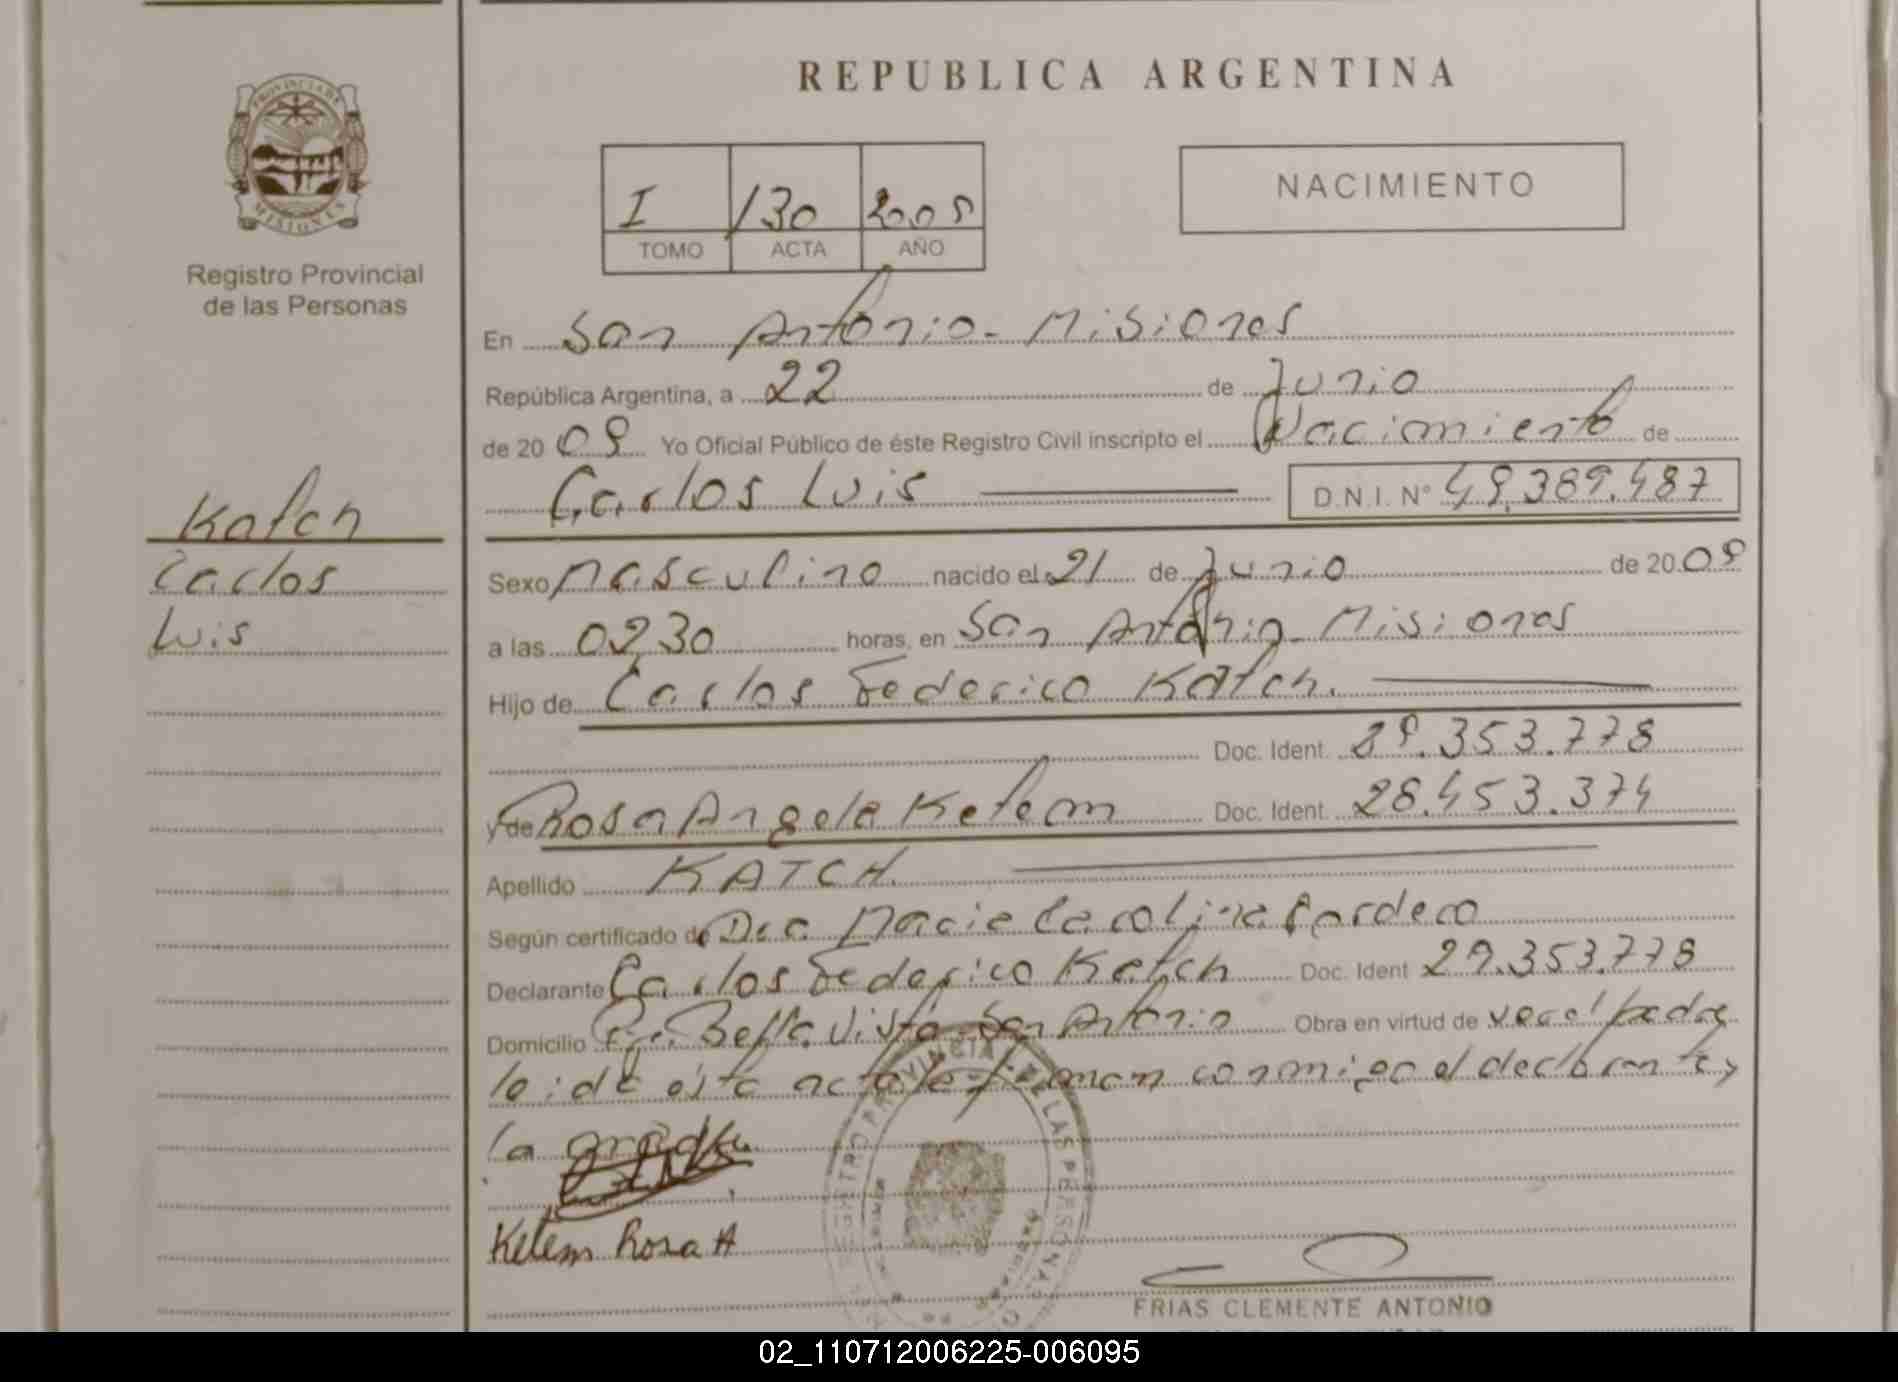 REPUBLICA ARGENTINA
PROVINCIA DE MISIONES
Registro Provincial
de las Personas
I 130 2009
TOMO ACTA AÑO
NACIMIENTO
En San Antonio - Misiones
República Argentina, a 22 de Junio
de 20 09 Yo Oficial Público de éste Registro Civil inscripto el Nacimiento de
Carlos Luis D.N.I. Nº 49.389.487
Katch
Carlos
Luis
Sexo Masculino nacido el 21 de Junio de 20 09
a las 02,30 horas, en San Antonio - Misiones
Hijo de Carlos Federico Katch.
Doc. Ident. 29.353.778
y de Rosa Angela Kelem Doc. Ident. 28.453.374
Apellido KATCH.
Según certificado de Dra. Maria Carolina
Declarante Carlos Federico Katch Doc. Ident 29.353.778
Domicilio Bella Vista San Antonio Obra en virtud de
leida esta acta la firman conmigo el declarante y
la
Kelem Rosa A
FRIAS CLEMENTE ANTONIO
02_110712006225-006095